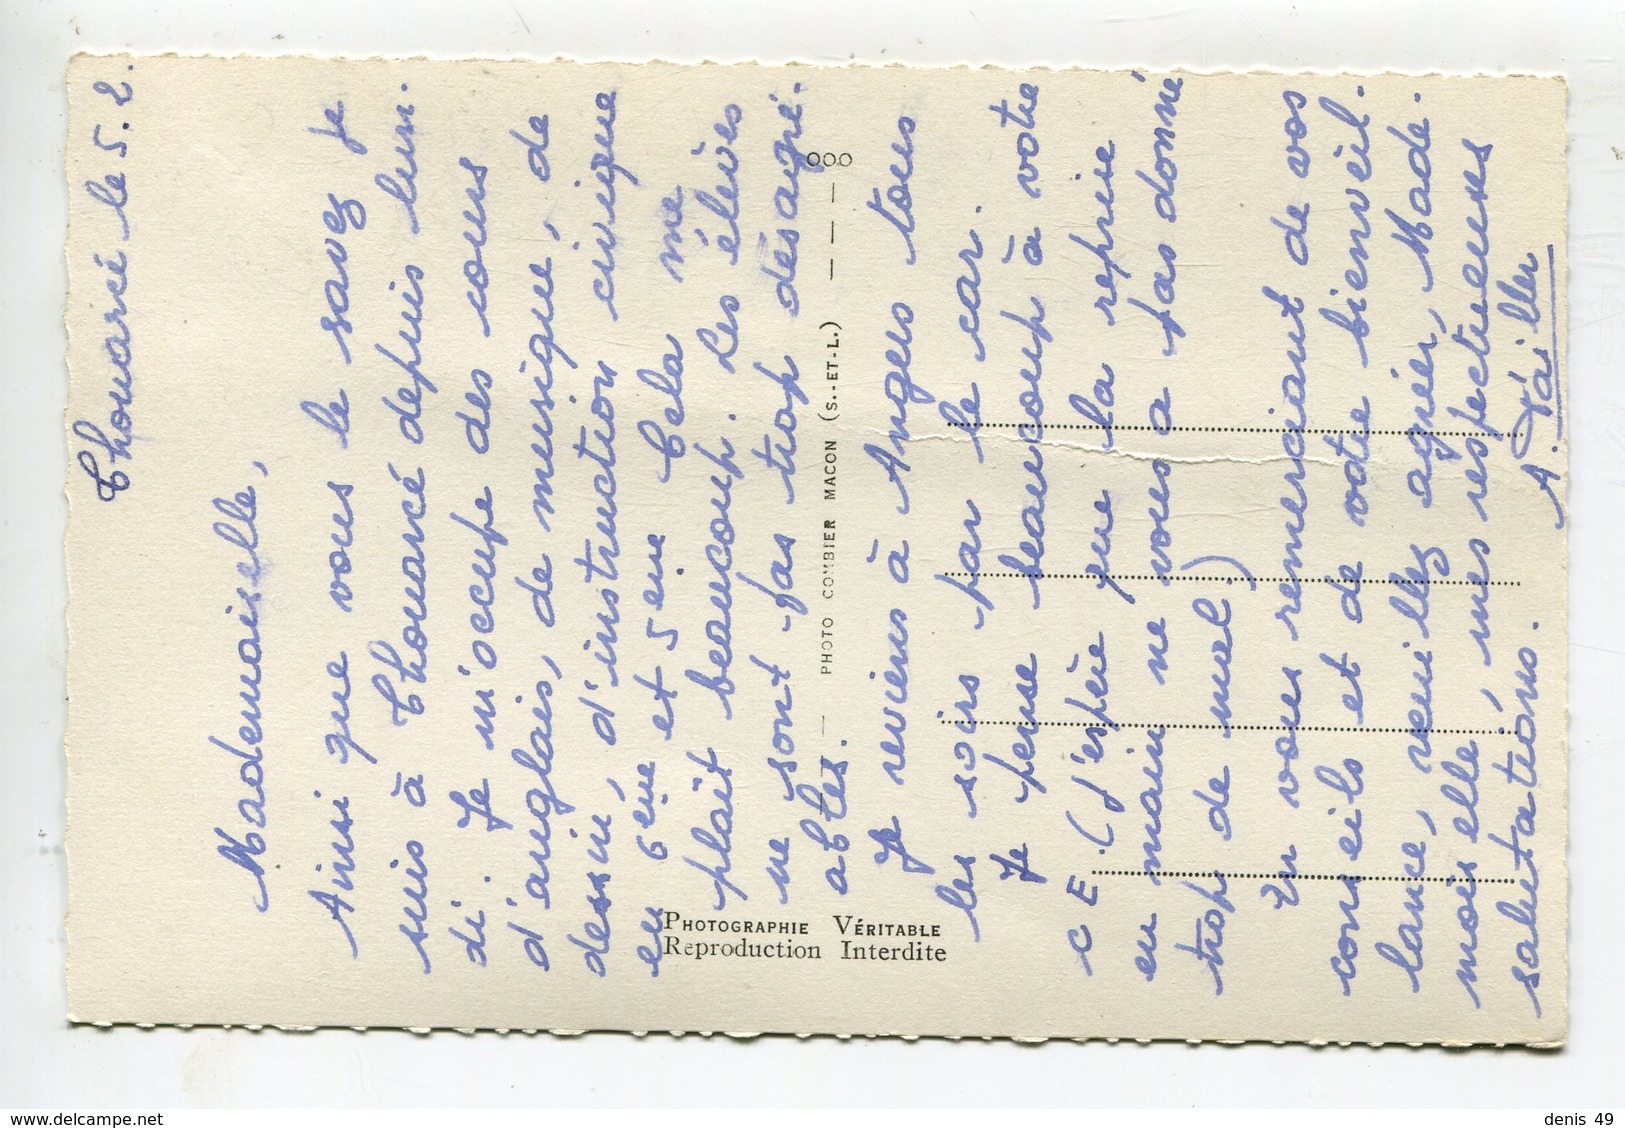 Thouarcé le 5.2.
Mademoiselle,
Ainsi que vous le savez je
suis à Thouarcé depuis lun.
di. Je m'occupe des cours
d'anglais, de musique, de
dessin, d'instruction civique
en 6ème et 5ème Cela me
plaît beaucoup. Les élèves
ne sont pas trop désagré.
ables.
Je reviens à Angers tous
les soirs par le car.
Je pense beaucoup à votre
CE. (J'espère que la reprise
en main ne vous a pas donné
trop de mal.)
En vous remerciant de vos
conseils et de votre bienveil.
lance, veuillez agréer, Made.
moiselle, mes respectueuses
salutations.
A. Vailler
PHOTOGRAPHIE VÉRITABLE
Reproduction Interdite
PHOTO COMBIER MACON (S.-ET-L.)
www.delcampe.net
denis 49